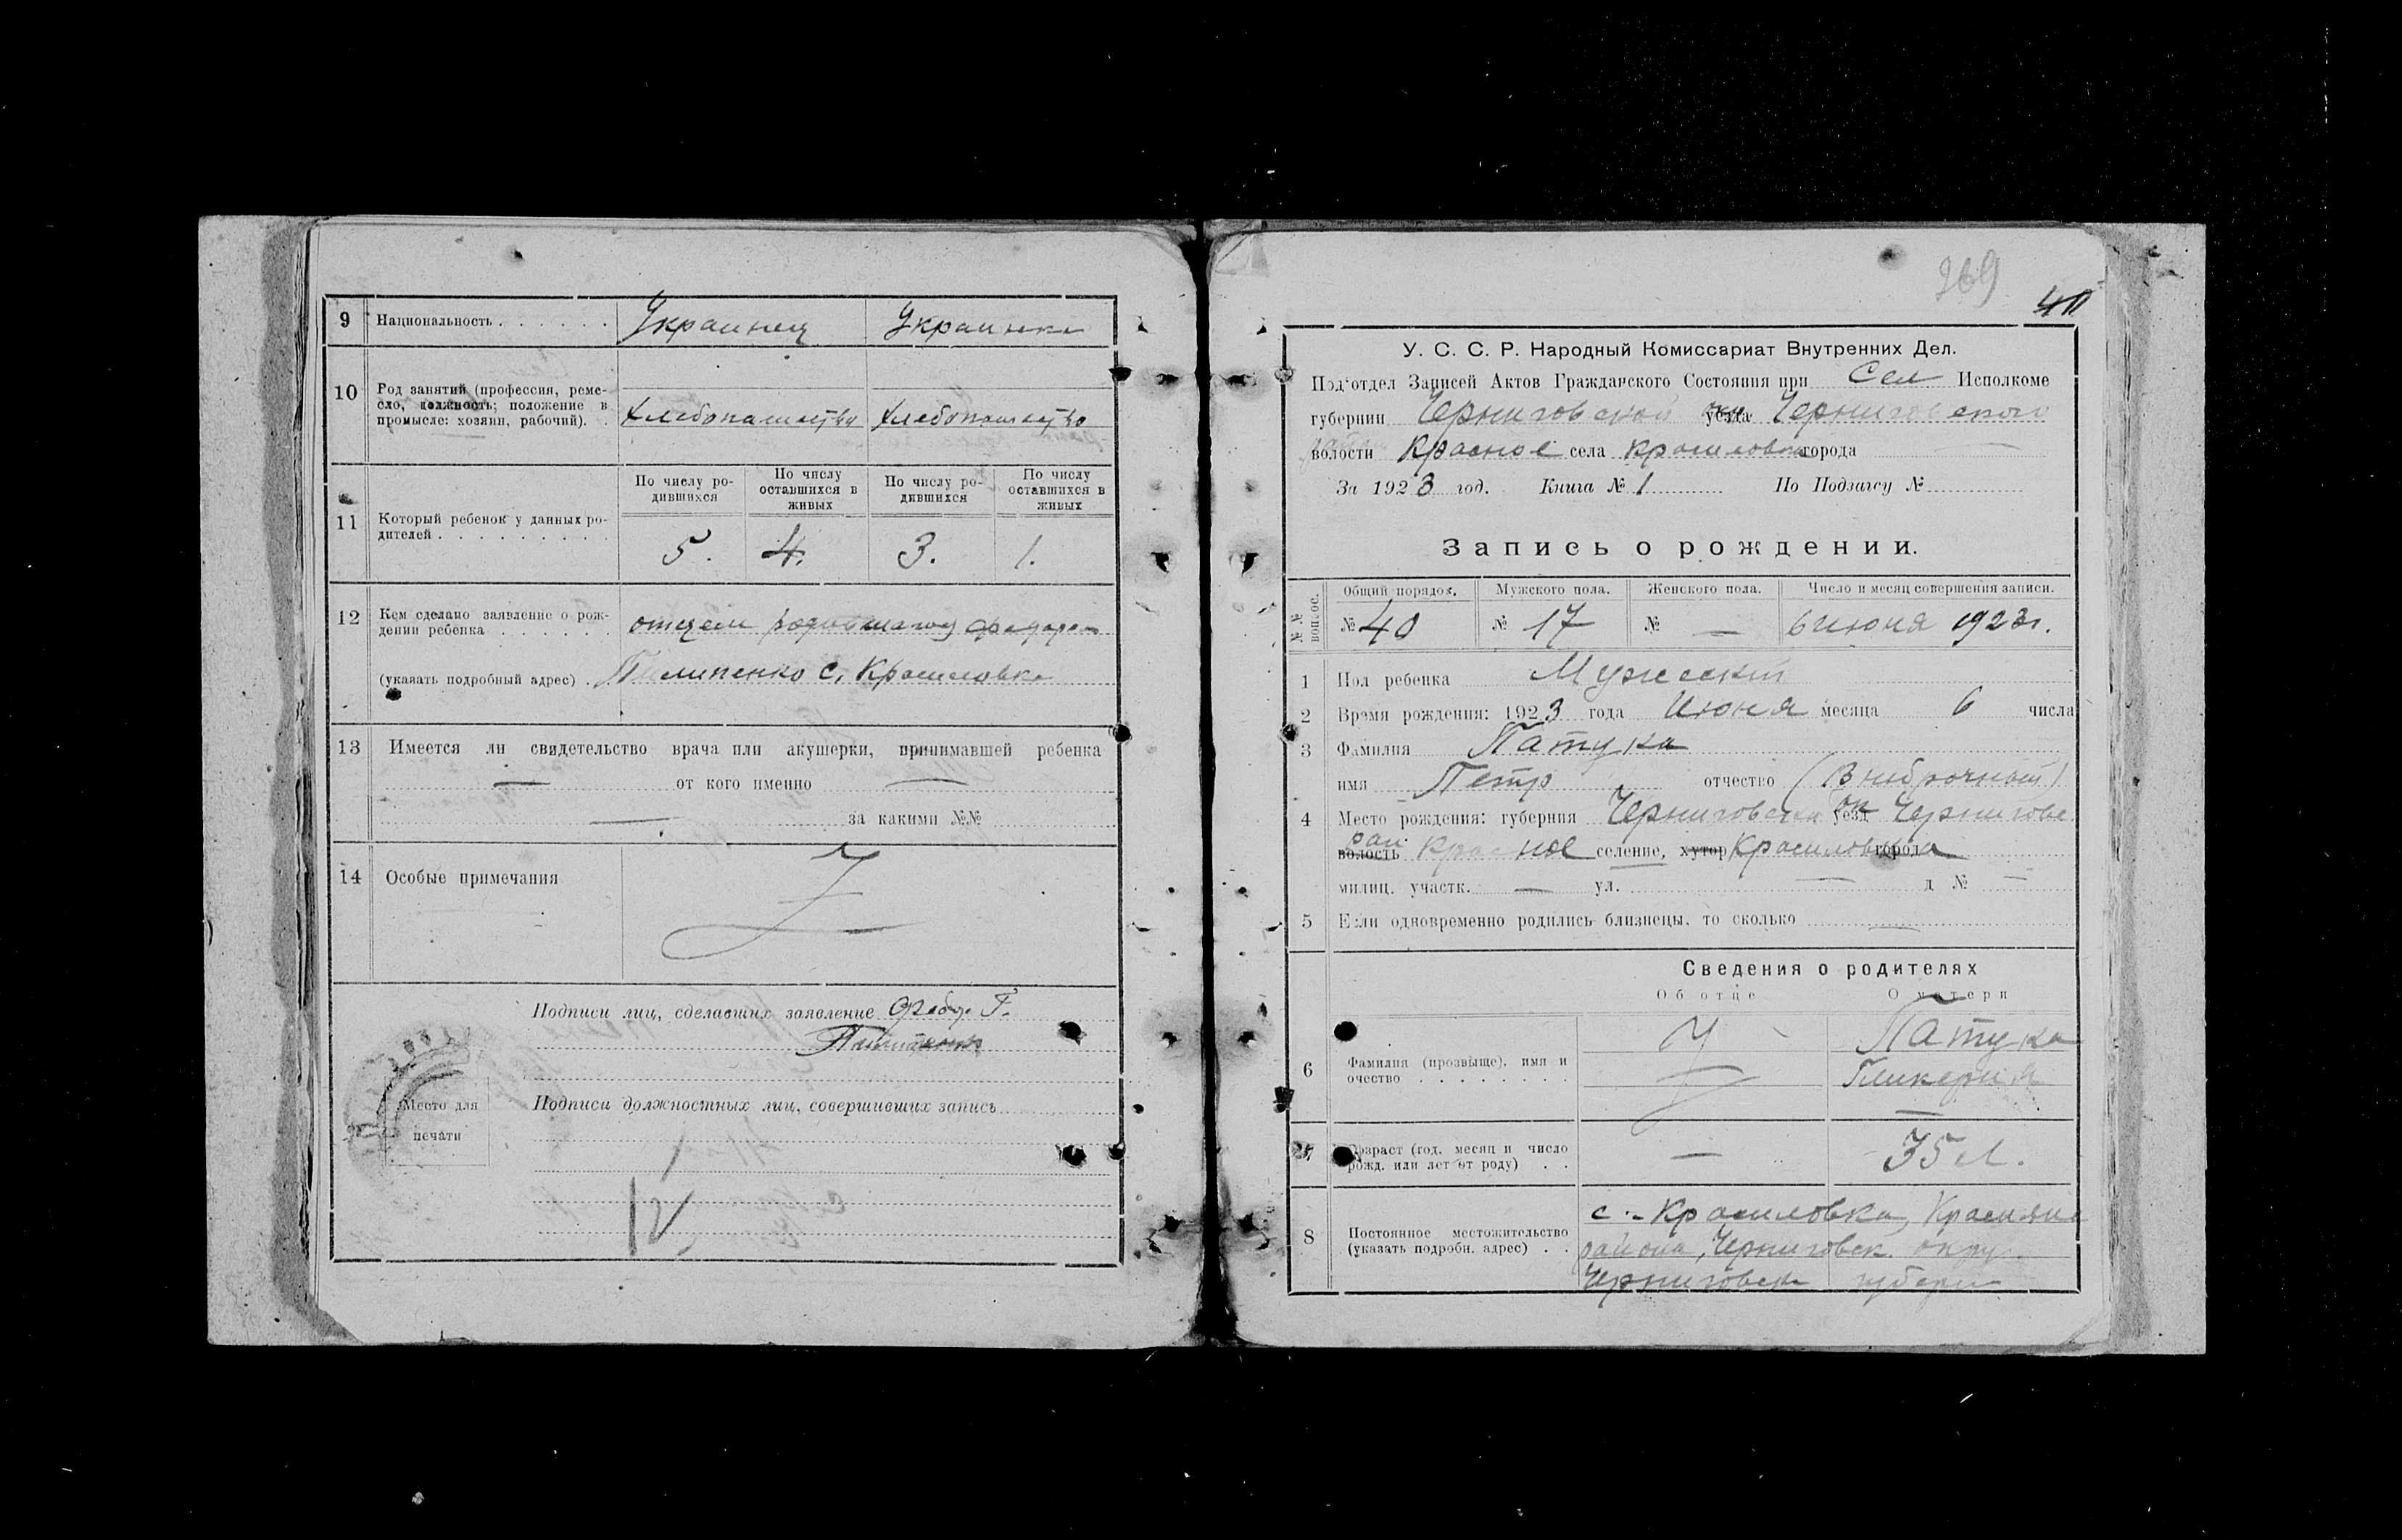 9 Национальность Украинец Украинка
10 Род занятий (профессия, реме-
сло, должность; положение в
промысле: хозяин, рабочий). Хлебопашество Хлебопашество
По числу ро-
дившихся По числу
оставшихся в
живых По числу ро-
дившихся По числу
оставшихся в
живых
11 Который ребенок у данных ро-
дителей 5. 4. 3. 1.
12 Кем сделано заявление о рож-
дении ребенка отцем
(указать подробный адрес) с. Красиловка
13 Имеется ли свидетельство врача или акушерки, принимавшей ребенка
— от кого именно —
— за какими №№
14 Особые примечания
Подписи лиц, сделавших заявление
Место для
печати
Подписи должностных лиц, совершивших запись
369
40
У. С. С. Р. Народный Комиссариат Внутренних Дел.
Под'отдел Записей Актов Гражданского Состояния при Сел Исполкоме
губернии Черниговской уезда Черниговского
волости Красное села Красиловка города —
За 1923 год. Книга № 1 По Подзагсу №
Запись о рождении.
№№ вопрос. Общий порядок. Мужского пола. Женского пола. Число и месяц совершения записи.
№ 40 № 17 № — 6 июня 1923 г.
1 Пол ребенка Мужеский
2 Время рождения: 1923 года Июня месяца 6 числа
3 Фамилия Патука
имя Петр отчество (Внебрачный)
4 Место рождения: губерния Черниговская ок уезд Чернигов
рай волость Красное селение, хутор Красиловка города
милиц. участк. — ул. — д № —
5 Если одновременно родились близнецы, то сколько —
Сведения о родителях
Об отце О матери
6 Фамилия (прозвыще), имя и
очество Патука
Гликерия
—
7 Возраст (год, месяц и число
рожд. или лет от роду) — 35 л.
8 Постоянное местожительство
(указать подробн. адрес) с. Красиловка, Краснян
района, Черниговск. округ.
Черниговск губерн